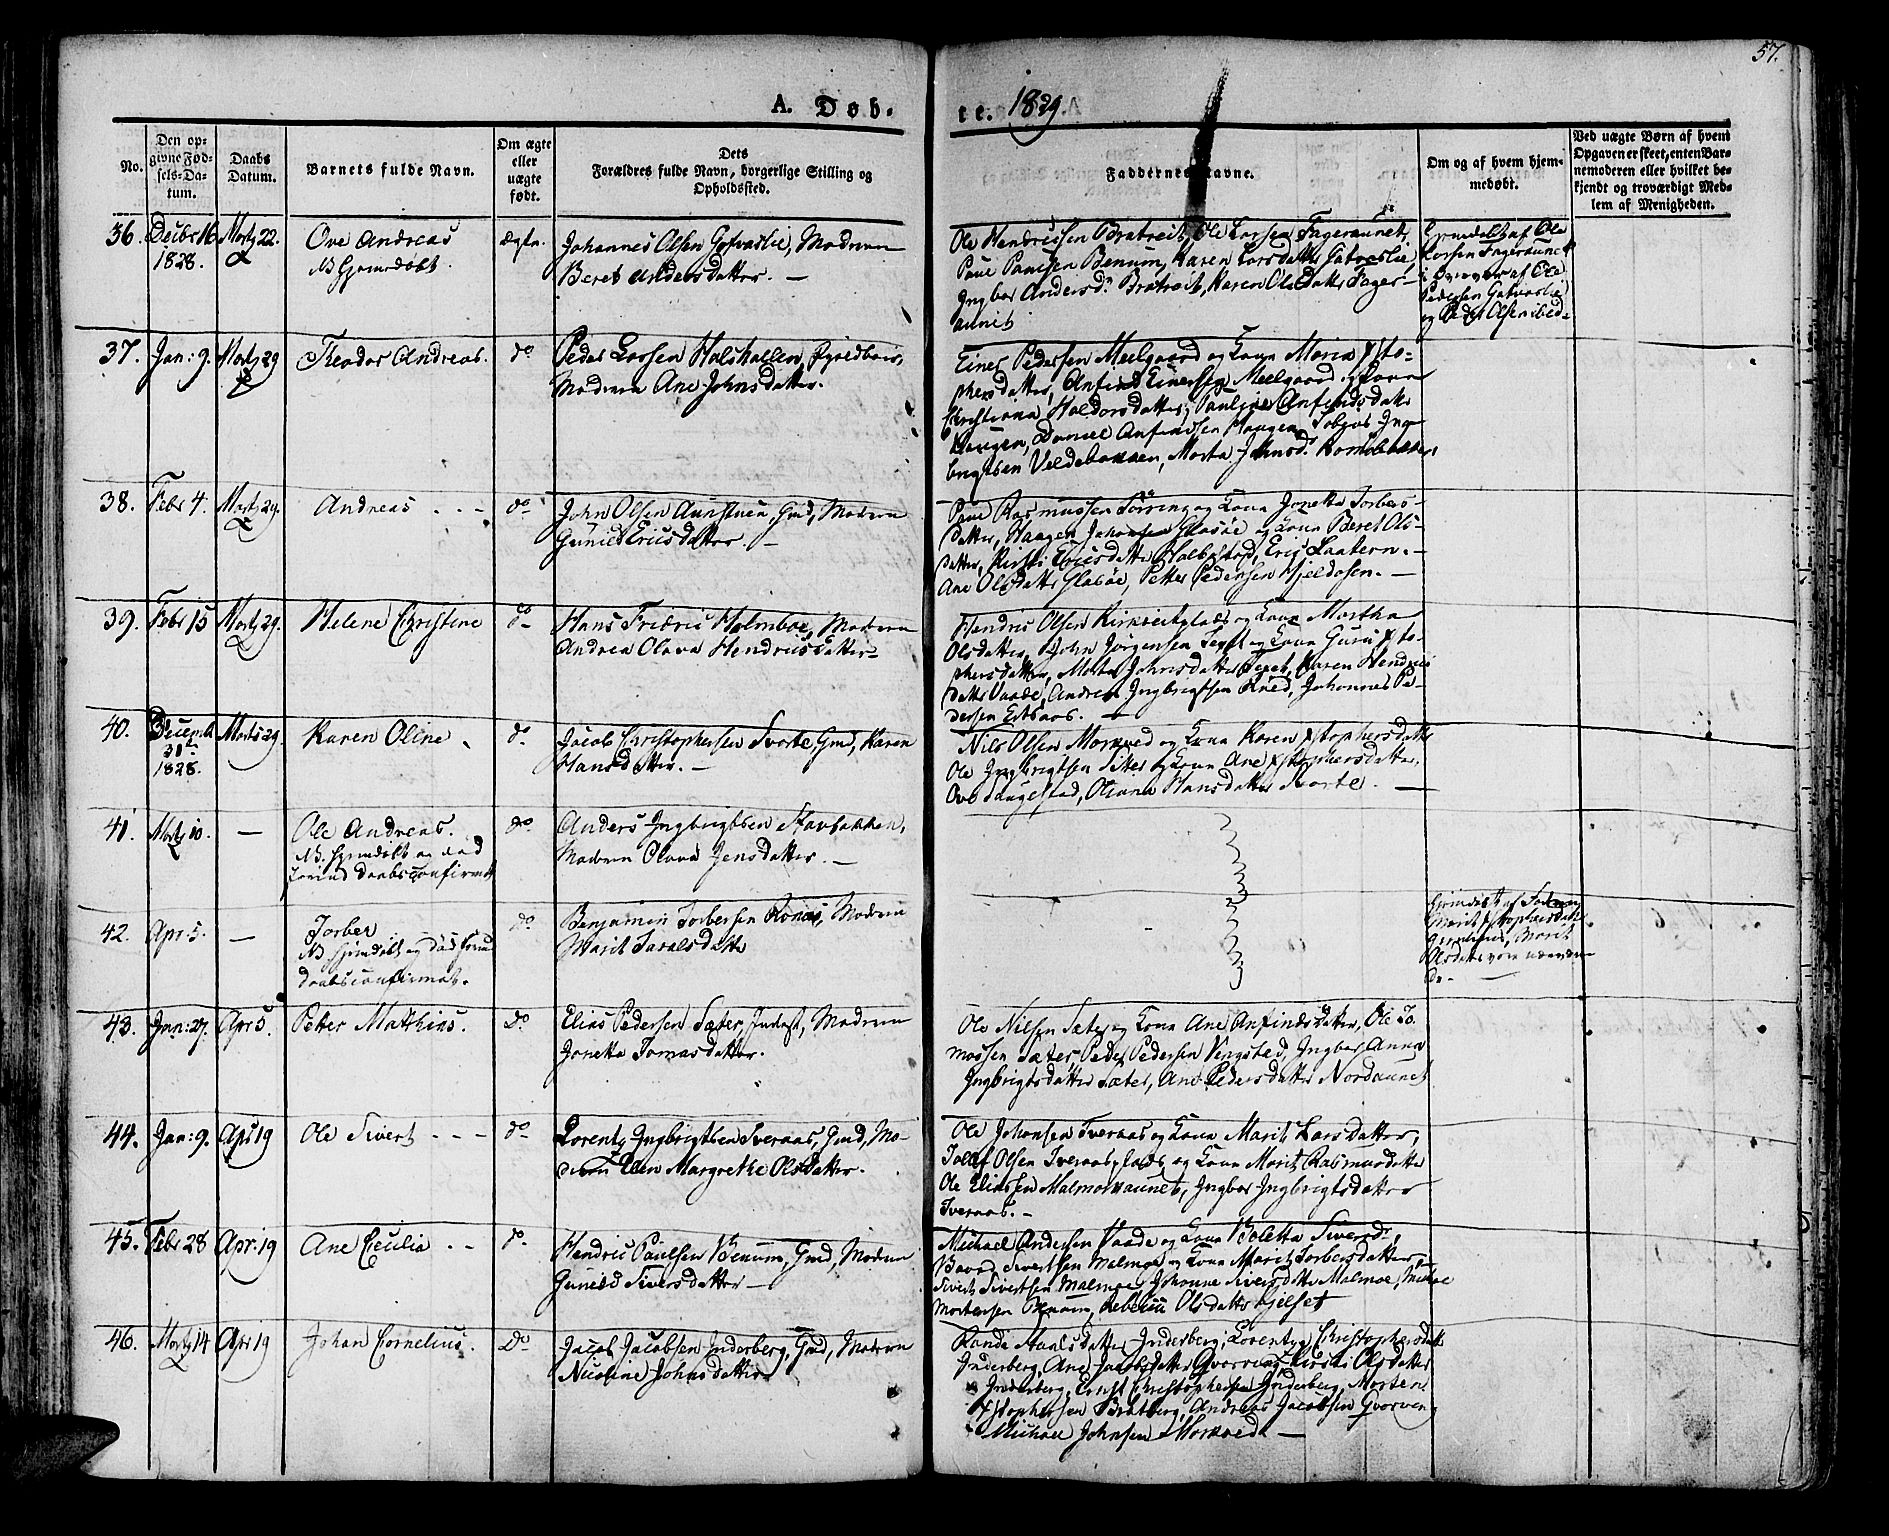 57.
A. Døb-
te. 1829.
No.
Den op-
givne Fød-
sels-Da-
tum.
Daabs
Datum.
Barnets fulde Navn.
Om ægte
eller
uægte
født.
Dets
Forældres fulde Navn, borgerlige Stilling og
Opholdssted.
Faddernes Navne.
Om og af hvem hjem-
medøbt.
Ved uægte Børn af hvem
Opgaven er skeet, enten Bar-
nemoderen eller hvilket be-
kjendt og troværdigt Med-
lem af Menigheden.
36.
Decbr 16
1828.
Martz 22.
Ove Andreas
NB Hjemdøbt.
Ægte.
Johannes Olsen Gotvaslie, Moderen
Beret Andersdatter. —
Ole Hendricsen Bratreit, Ole Larsen Fageraunet,
Paul Paulsen Benum, Karen Larsdatter
Ingbor Andersd. Bratreit, Karen Olsdatter Fager-
aunet
Hjemdøbt af Ole
Larsen Fageraunet
af Ole
Pedersen Gotvaslie
og Peder Olsen
37.
Jan: 9.
Martz 29
Theodor Andreas.
do
Peder Larsen Halshallen,
Moderen Ane Johnsdatter.
Einer Pedersen Meelgaard og Kona Maria Xto-
phersdatter, Anfind Einersen Meelgaard og Kona
Christiana Haldorsdatter, Pauline Anfindsdatter
Haugen, Daniel Anfindsen Haugen, Tobias Ing-
brigtsen Veldebakken, Marta Johnsd.
38.
Febr 4.
Martz 29.
Andreas - - -
do
John Olsen Aunstuen, Gmd, Moderen
Gunild Ericsdatter. —
Paul Rasmussen Sørring og Kona Jonetta Torbers-
datter, Haagen Johansen Glasøe og Kona Beret Ols-
datter, Kirsti Ericsdatter Halbstad, Eric Laatern. —
Ane Olsdatter Glasøe, Petter Pedersen Hjeldosen. —
39.
Febr 15
Martz 29.
Helene Christine
do
Hans Fridric Holmboe, Moderen
Andrea Olava Hendricsdatter
Hendric Olsen Kirkreitplads og Kona Martha
Olsdatter, John Jørgensen og Kona Guru Xto-
phersdatter, Marta Johnsdatter Karen Hendrics-
datter Vaade, Andreas Ingbrigtsen Kned, Johannes Pe-
dersen
40.
Decemb
31te
1828.
Marts 29.
Karen Oline
do
Jacob Christophersen Svorte, Gmd, Karen
Hansdatter. —
Nils Olsen Morkved og Kona Karen Xstophersdatter
Ole Ingbrigtsen og Kona Ane Xstophersdatter
Ove Saugestad, Oliana Hansdatter Svorte. —
41.
Martz 10.
—
Ole Andreas.
NB. Hjemdøbt og død
forend Daabsconfirmat
do
Anders Ingbrigtsen Stavbakken,
Moderen Olava Jensdatter. —
42.
Apr. 5.
—
Torber
NB Hjemdøbt og død forend
Daabsconfirmat.
do
Benjamin Torbersen Rønas, Moderen
Marit Taraldsdatter
Hjemdøbt af
Marit Xstophersdatter
Marit
Olsdatter vare nærværen-
de. —
43.
Jan: 27.
Apr 5.
Petter Mathias.
do
Elias Pedersen Sæter, Inderst, Moderen
Jonetta Tomasdatter.
Ole Nilsen Sæter og Kona Ane Anfindsdatter, Ole To-
massen Sæter, Peder Pedersen Vingsted, Ingbor Anna
Ingbrigtsdatter Sæter, Ane Pedersdatter Nordaunet
44.
Jan: 9.
Apr 19
Ole Sivert - - -
do
Lorentz Ingbrigtsen Tveraas, Gmd, Mo-
deren Elen Margrethe Olsdatter.
Ole Johansen Tveraas og Kona Marit Larsdatter,
Tollef Olsen Tveraasplads og Kona Marit Rasmusdatter
Ole Eliassen Malmovaunet, Ingbor Ingbrigtsdatter
Tveraas. —
45.
Febr 28
Apr. 19
Ane Cecilia - -
do
Hendric Paulsen Benum, Gmd, Moderen
Gunild Siversdatter —
Michael Andersen Vaade og Kona Boletta Siversd.,
Baard Sivertsen Malmoe og Kona Marit Torbersdatter,
Sivert Sivertsen Malmoe, Johanna Siversdatter Malmoe,
Mortensen Benum, Rebecca Olsdatter Hjelset
46.
Martz 14
Apr 19
Johan Cornelius.
Do
Jacob Jacobsen Inderberg, Gmd, Moderen
Nicoline Johnsdatter
Randi Inderberg, Lorentz Christophersen
Inderberg, Ane Jacobsdatter Qvorven, Kirsti Olsdatter
Inderberg, Ernst Christophersen Inderberg, Morten
Xstophersen Bratberg, Andreas Jacobsen Qvorven,
Michael Johnsen Morkved —